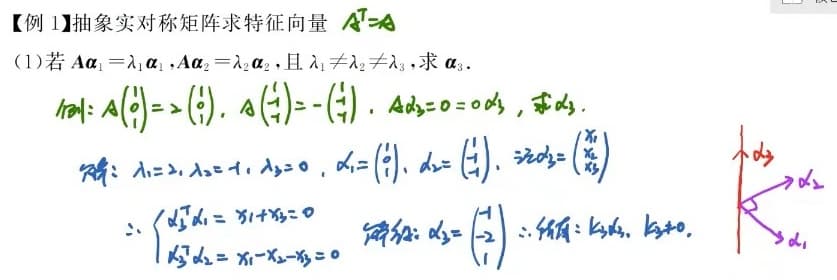 【例 1】抽象实对称矩阵求特征向量 Aᵀ=A
(1)若 Aα₁=λ₁α₁,Aα₂=λ₂α₂,且 λ₁≠λ₂≠λ₃,求 α₃.
例: A(1 0 1)=2(1 0 1), A(1 -1 -1)=-(1 -1 -1). Aα₃=0=0α₃, 求α₃.
解: λ₁=2, λ₂=-1, λ₃=0, α₁=(1 0 1), α₂=(1 -1 -1), 设α₃=(x₁ x₂ x₃)
∴ { α₃ᵀα₁=x₁+x₃=0
α₃ᵀα₂=x₁-x₂-x₃=0 解得: α₃=(-1 -2 1) ∴所有: k₃α₃, k₃≠0.
α₃
α₂
α₁